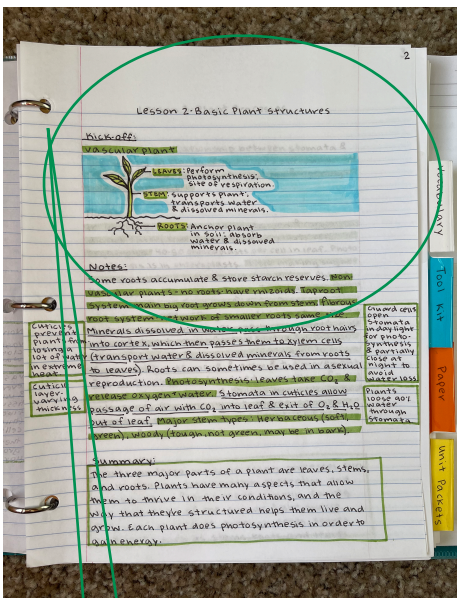 2
Lesson 2-Basic Plant Structures
Kick-off:
vascular plant
LEAVES: Perform
photosynthesis;
site of respiration.
STEM: supports plant;
transports water
& dissolved minerals.
ROOTS: Anchor plant
in soil; absorb
water & dissoved
minerals.
Notes:
Some roots accumulate & store starch reserves. Non-
vascular plants: no roots-have rhizoids. Taproot
system: main big root grows down from stem. Fibrous
root system: network of smaller roots same size
Minerals dissolved in water pass through root hairs
into cortex, which then passes them to xylem cells
(transport water & dissolved minerals from roots
to leaves). Roots can sometimes be used in asexual
reproduction. Photosynthesis: leaves take CO2 &
release oxygen + water. Stomata in cuticles allow
passage of air with CO2 into leaf & exit of O2 & H2O
out of leaf. Major stem types: Herbaceous (soft,
green), woody (tough, not green, may be in bark).
Cuticles
prevent
plant from
losing a
lot of water
in extreme
heat
Cuticle
layer-
varying
thickness
Guard cells
open
stomata
in daylight
for photo-
synthesis
& partially
close at
night to
avoid
water loss
Plants
loose 90%
water
through
stomata
Summary:
The three major parts of a plant are leaves, stems,
and roots. Plants have many aspects that allow
them to thrive in their conditions, and the
way that they're structured helps them live and
grow. Each plant does photosynthesis in order to
gain energy.
Vocabulary
Tool Kit
Paper
Unit Packets